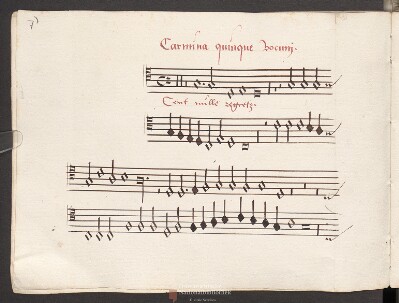 Carmina quinque Vocum.
Cent mille regretz.